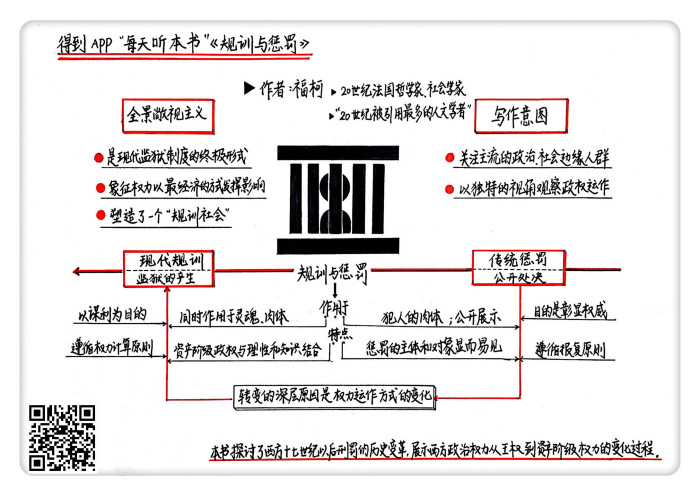 得到 APP "每天听本书"《规训与惩罚》
▶ 作者:福柯
▸ 20世纪法国哲学家、社会学家
▸ "20世纪被引用最多的人文学者"
全景敞视主义
是现代监狱制度的终极形式
象征权力以最经济的方式发挥影响
塑造了一个"规训社会"
写作意图
关注主流的政治社会边缘人群
以独特的视角观察政权运作
现代规训
监狱的产生
规训与惩罚
传统惩罚
公开处决
以谋利为目的
同时作用于灵魂、肉体
作用于
犯人的肉体;公开展示
目的是彰显权威
遵循权力计算原则
资产阶级政权与理性和知识结合
特点
惩罚的主体和对象显而易见
遵循报复原则
转变的深层原因是权力运作方式的变化
本书探讨了西方十七世纪以后刑罚的历史变革,展示西方政治权力从王权到资产阶级权力的变化过程。